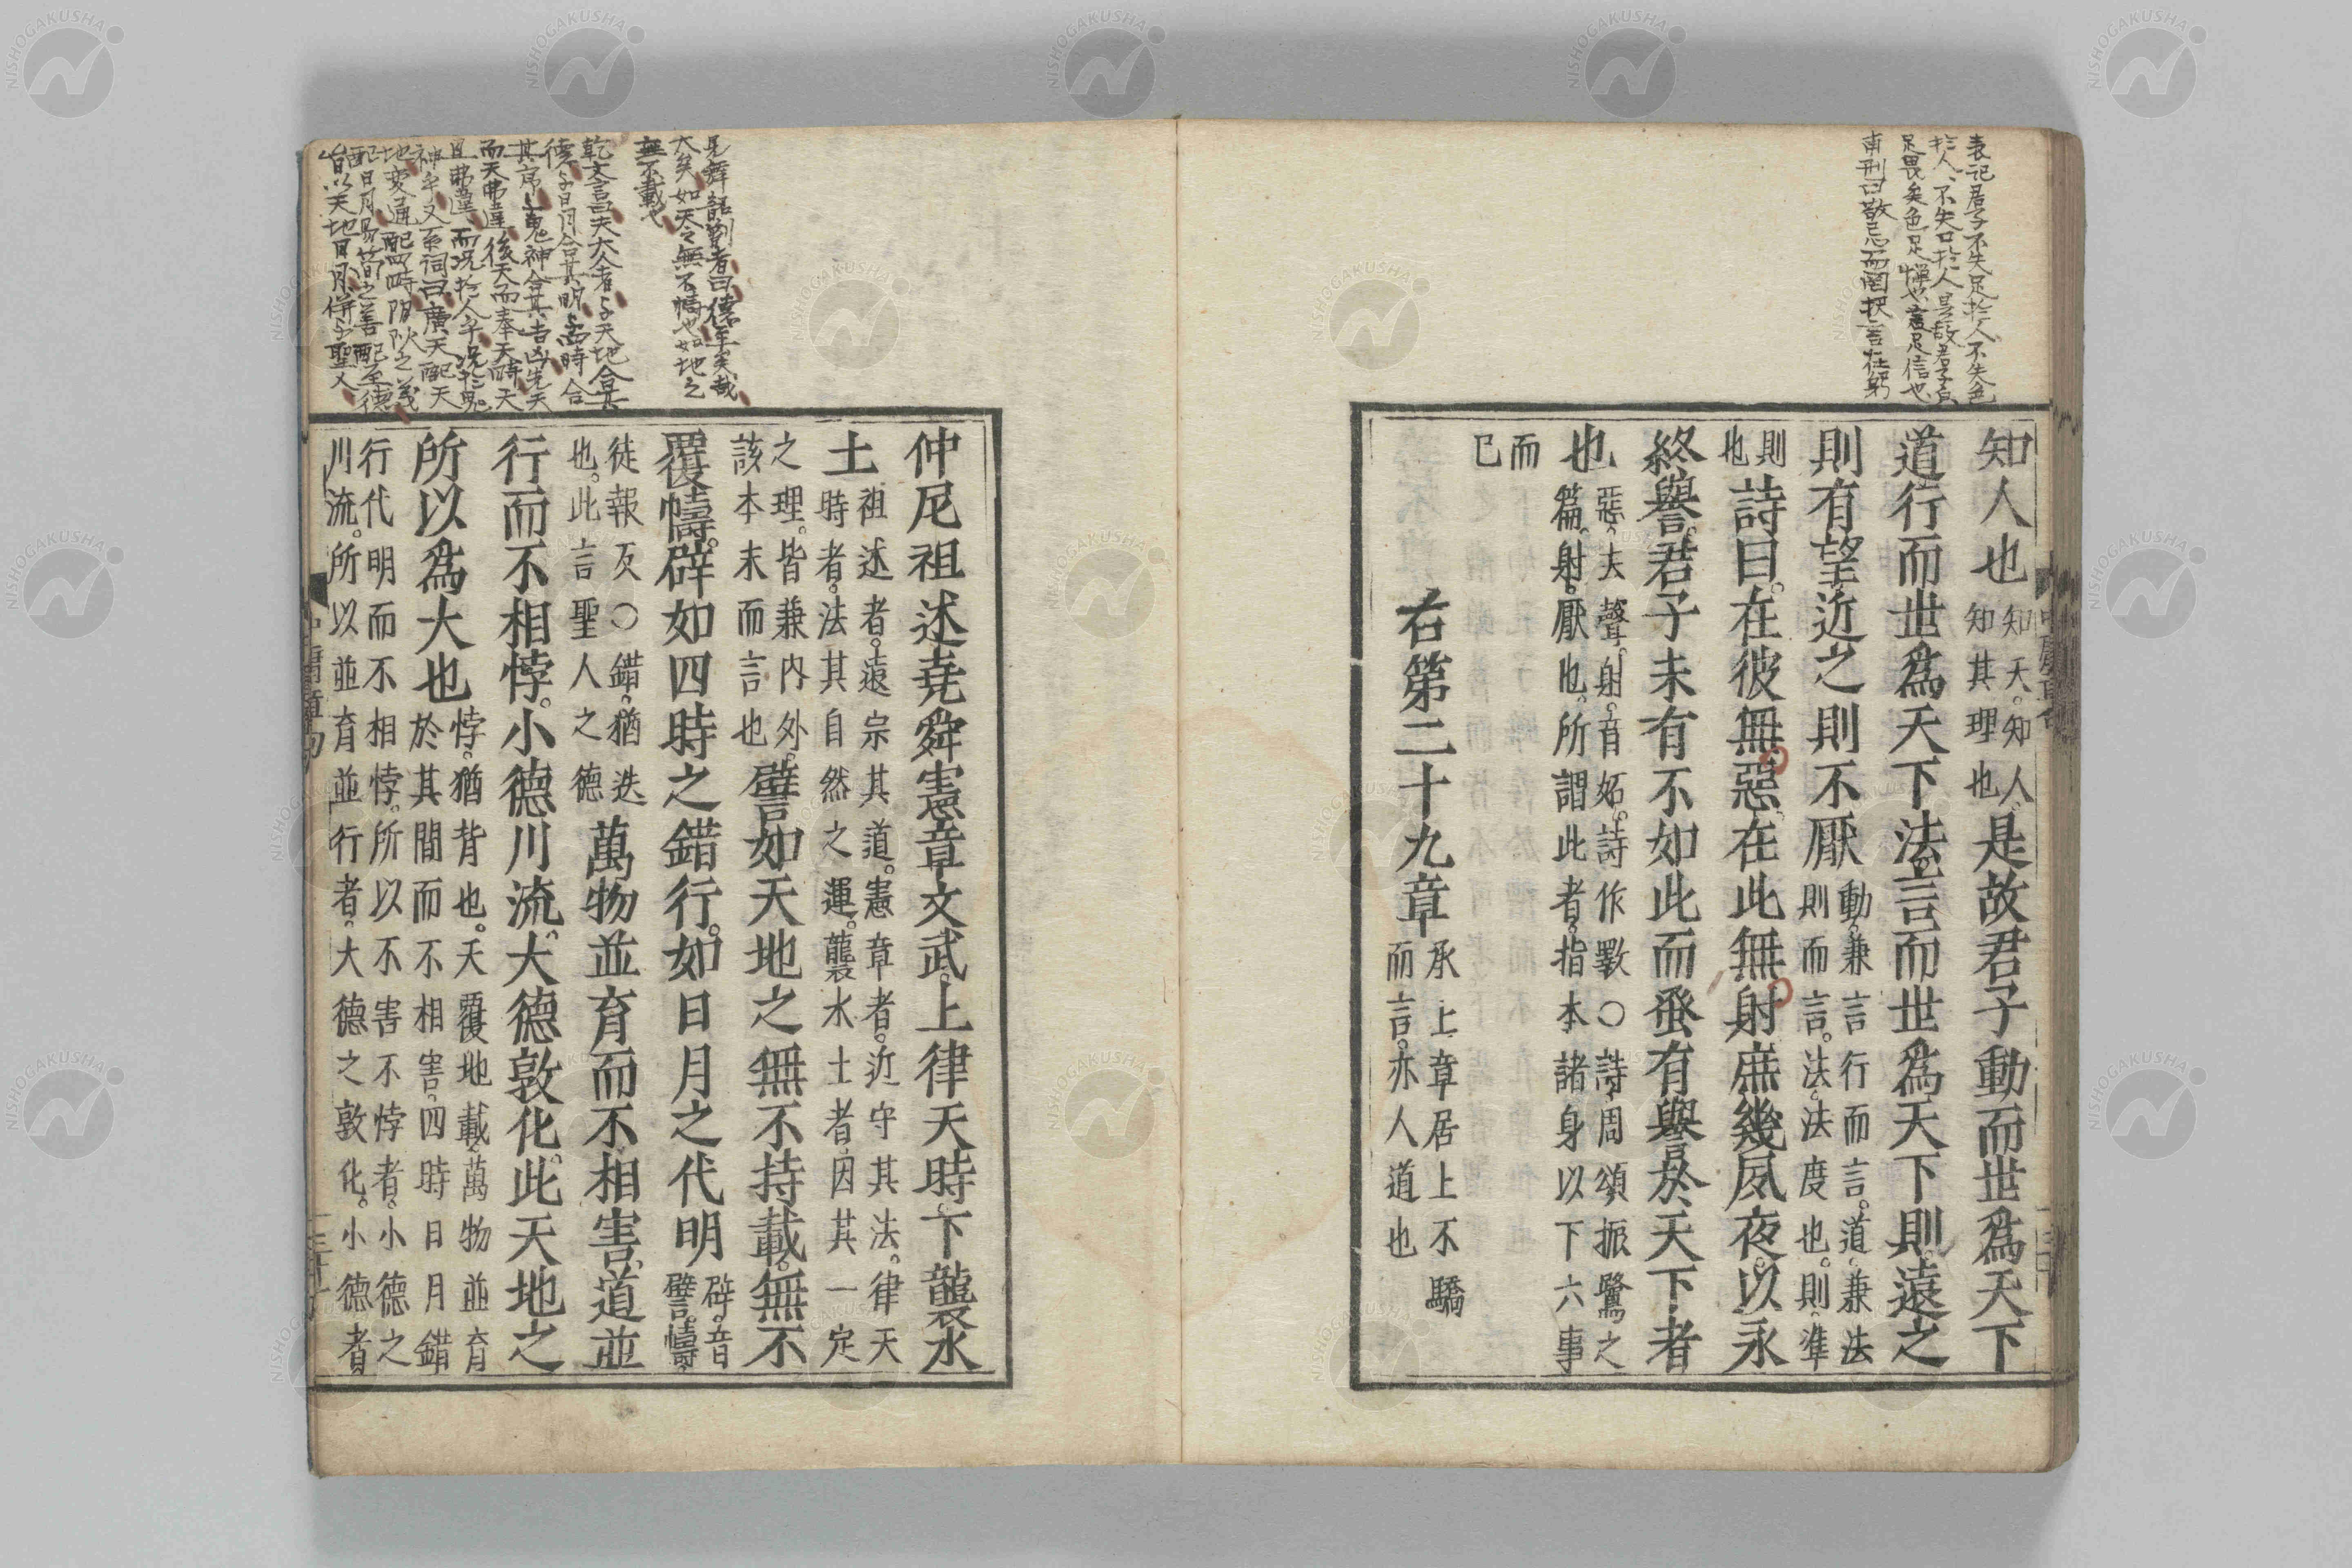 表記君子不失足於人不失色
於人、不失口於人是故君子貌
足畏矣色足憚也言足信也
甫刑曰敬忌而罔択言在躬
知人也知天知人。
知其理也是故君子動而世爲天下
道行而世爲天下法言而世爲天下則遠之
則有望近之則不厭動兼言行而言。道兼法
則而言。法法度也。則準
則
也詩曰。在彼無惡在此無射庶幾夙夜以永
終譽。君子未有不如此而蚤有譽於天下者
也惡。去聲。射。音妬。詩作斁〇詩周頌振鷺之
篇。射。厭也。所謂此者。指本諸身以下六事
而
已
右第二十九章承上章居上不驕
而言。亦人道也
見舞韶箾者曰德至矣哉
大矣如天之無不幬也如地之
無不載也
乾文言曰夫大人者与天地合其
德与日月合其明与四時合
其序与鬼神合其吉凶先天
而天弗違後天而奉天時天
且弗違而況於人乎況於鬼
神乎又系詞曰廣大配天
地変通配四時陰陽之義
配日月易簡之善配至德
皆以天地日月併与聖人
仲尼祖述堯舜憲章文武上律天時下襲水
土祖述者。遠宗其道。憲章者。近守其法。律天
時者。法其自然之運。襲水土者。因其一定
之理。皆兼内外。
該本末而言也譬如天地之無不持載。無不
覆幬。辟如四時之錯行。如日月之代明辟。音
譬。幬。
徒報反〇錯。猶迭
也。此言聖人之德萬物並育而不相害道並
行而不相悖。小德川流。大德敦化。此天地之
所以爲大也悖。猶背也。天覆地載萬物並育
於其間而不相害。四時日月錯
行代明而不相悖。所以不害不悖者。小德之
川流。所以並育並行者。大德之敦化。小德者